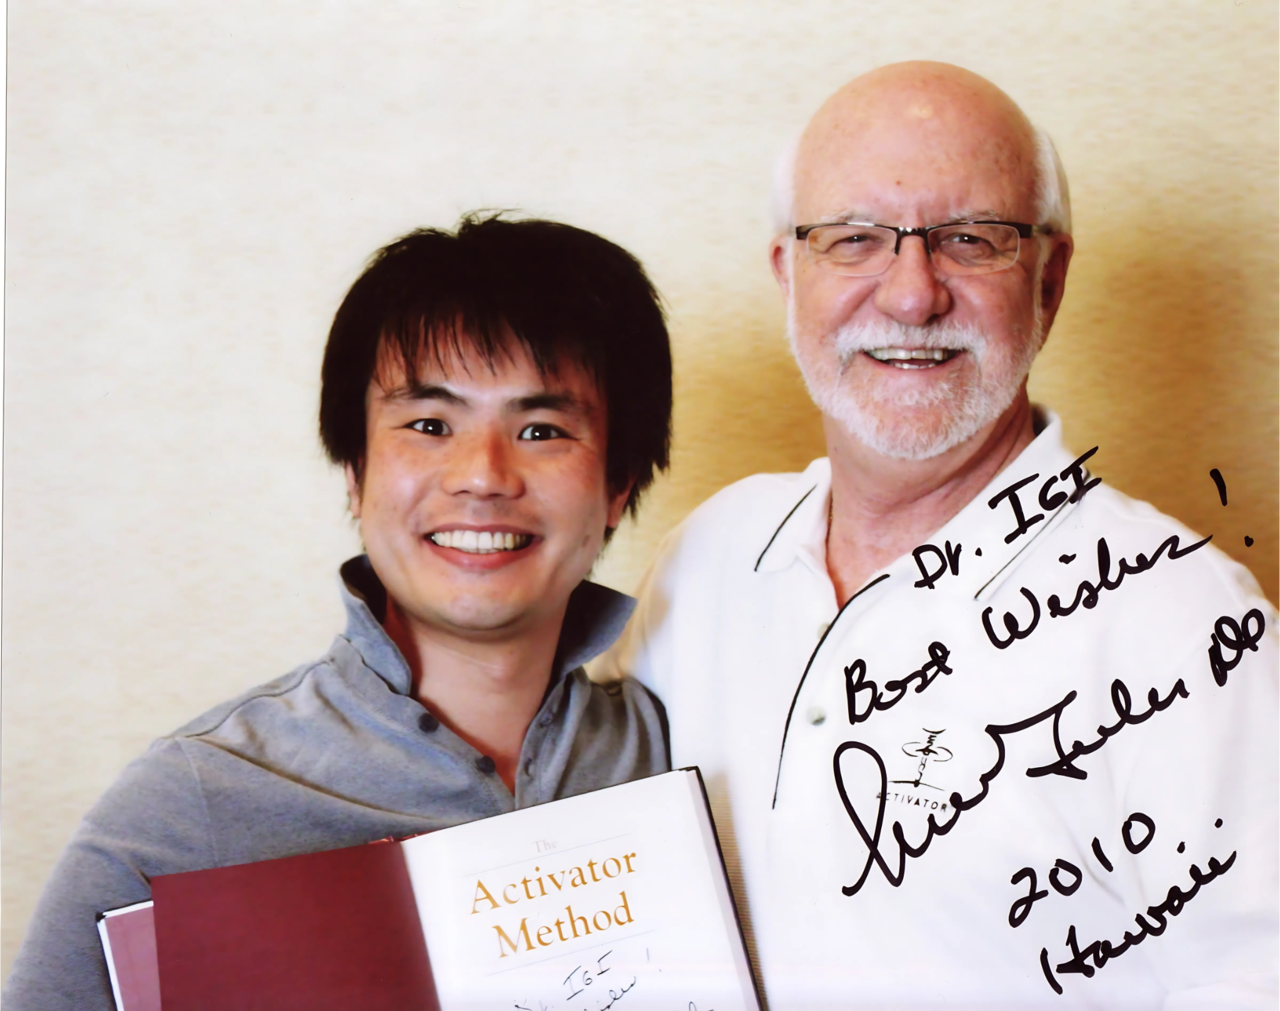 Dr. IGI
Best Wishes!
2010
Hawaii
ACTIVATOR
The
Activator
Method
Dr. IGI